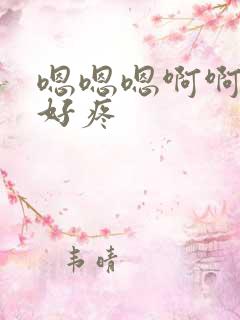 嗯嗯嗯啊啊
好疼
韦晴